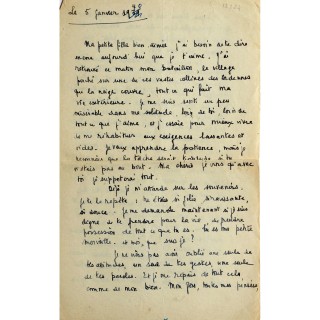 Le 5 janvier 19
Ma petite fille bien aimée, j'ai besoin de te dire
encore aujourd'hui que je t'aime, j'ai
retrouvé ce matin mon bataillon, le village
perché sur une de ces vastes collines des Ardennes
que la neige couvre, tout ce qui fait ma
vie extérieure. Je me suis senti un peu
misérable dans ma solitude, loin de toi loin de
tout ce que j'aime, et j'essaie pour mieux vivre
de me réhabituer aux exigences lassantes et
vides. Je veux apprendre la patience, mais je
reconnais que la tâche serait si tu
n'étais pas au bout. Ma chérie je crois qu'avec
toi je supporterai tout.
Déjà je m'attarde sur les souvenirs,
je te le répète, tu étais si jolie
si douce. Je me demande maintenant si je suis
digne de te prendre pour la vie, de prendre
possession de tout ce que tu es. Tu es ma petite
merveille, et moi, que suis-je?
Je ne crois pas avoir oublié une seule de
tes attitudes, un seul de tes gestes, une seule
de tes paroles. Et je me repais de tout cela
comme de mon bien. Mon foyer, toutes mes pensées